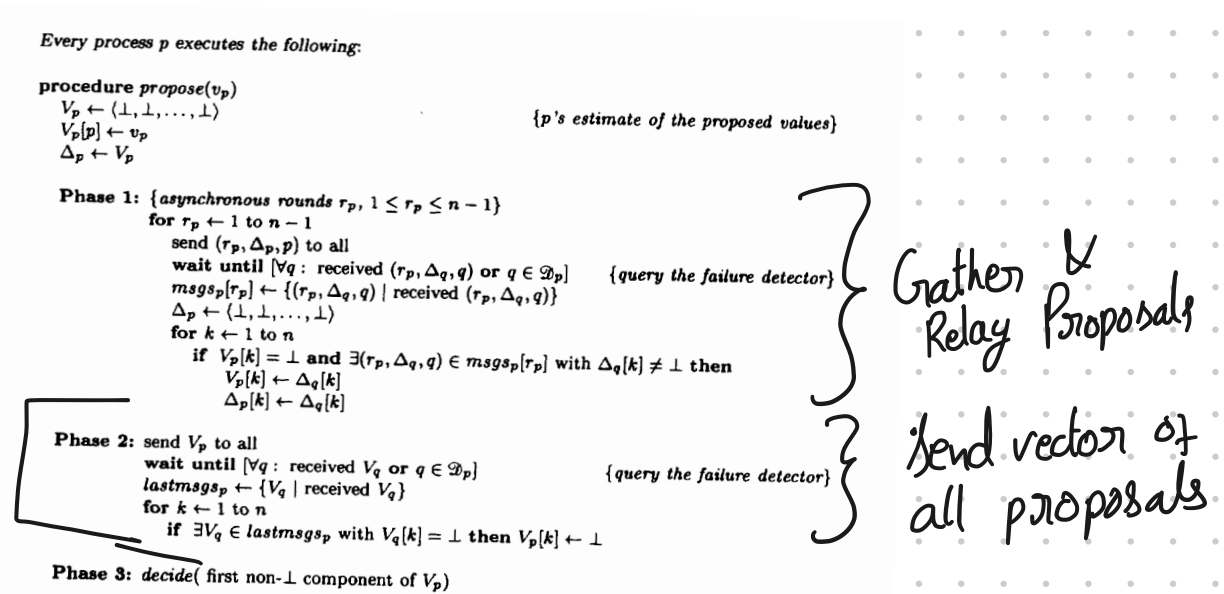 Every process p executes the following:
procedure propose(vₚ)
Vₚ ← ⟨⊥, ⊥, …, ⊥⟩ {p's estimate of the proposed values}
Vₚ[p] ← vₚ
Δₚ ← Vₚ
Phase 1: {asynchronous rounds rₚ, 1 ≤ rₚ ≤ n − 1}
for rₚ ← 1 to n − 1
send (rₚ, Δₚ, p) to all
wait until [∀q : received (rₚ, Δ_q, q) or q ∈ 𝒟ₚ] {query the failure detector}
msgsₚ[rₚ] ← {(rₚ, Δ_q, q) | received (rₚ, Δ_q, q)}
Δₚ ← ⟨⊥, ⊥, …, ⊥⟩
for k ← 1 to n
if Vₚ[k] = ⊥ and ∃(rₚ, Δ_q, q) ∈ msgsₚ[rₚ] with Δ_q[k] ≠ ⊥ then
Vₚ[k] ← Δ_q[k]
Δₚ[k] ← Δ_q[k]
Gather &
Relay Proposals
Phase 2: send Vₚ to all
wait until [∀q : received V_q or q ∈ 𝒟ₚ] {query the failure detector}
lastmsgsₚ ← {V_q | received V_q}
for k ← 1 to n
if ∃V_q ∈ lastmsgsₚ with V_q[k] = ⊥ then Vₚ[k] ← ⊥
Send vector of
all proposals
Phase 3: decide( first non-⊥ component of Vₚ)